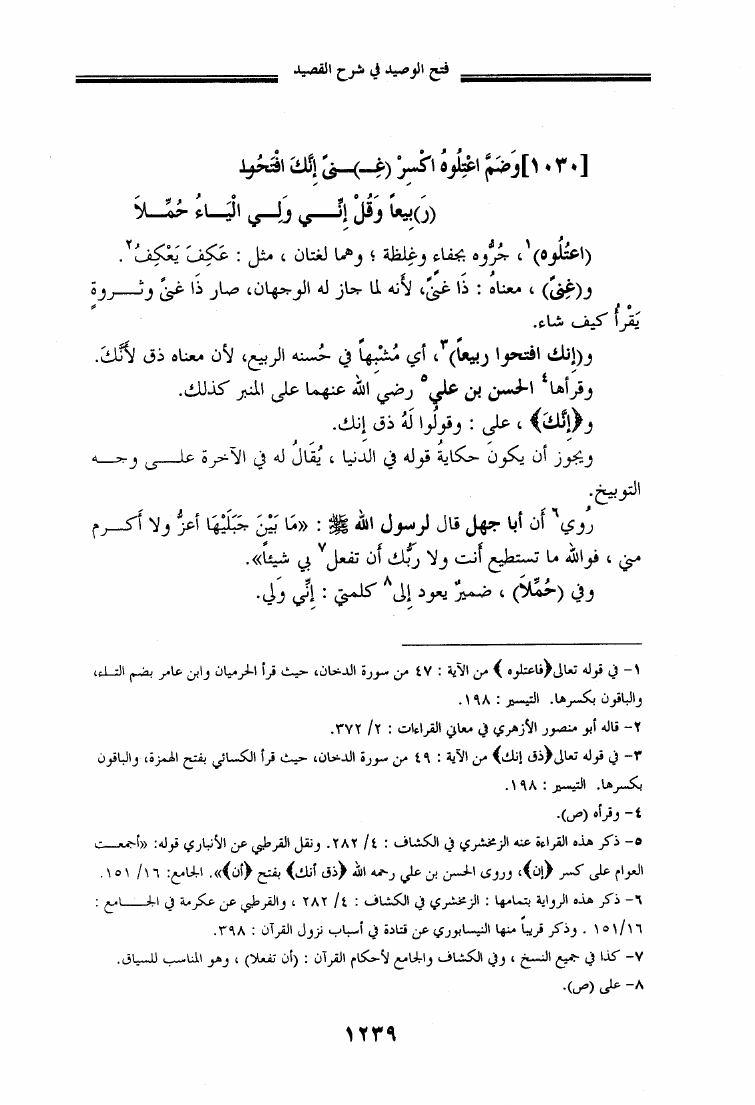 فتح الوصيد في شرح القصيد
[١٠٣٠] وَضَمَّ اعْتِلُوهُ اكْسِرْ (غِـ)ـنىً إِنَّكَ افْتَحُوا
(رَ)بِيعاً وَقُلْ إِنِّـــي وَلِـي الْيَـاءُ حُمِّـلاَ
(اعتُلُوه)١، جُرُّوه بجفاء وغِلظة ؛ وهما لغتان ، مثل : عَكِفَ يَعْكِفُ٢.
و(غِنىً) ، معناهُ : ذَا غنىً، لأنه لما حاز له الوجهان، صار ذَا غنىً وثـــروةٍ
يَقْرأُ كيف شاء.
و(إنك افتحوا ربيعاً)٣، أي مُشْبِهاً في حُسنه الربيع، لأن معناه ذق لأَنَّكَ.
وقرأها٤ الحسن بن علي٥ رضي الله عنهما على المنبر كذلك.
و﴿إِنَّكَ﴾ ، على : وقولُوا لَهُ ذق إنك.
ويجوز أن يكونَ حكايةُ قوله في الدنيا ، يُقَالُ له في الآخرة علـــى وجـــه
التوبيخ.
رُوي٦ أن أبا جهل قال لرسول الله ﷺ : «مَا بَيْنَ جَبَلَيْهَا أعزُّ ولا أكـــرم
مني ، فوالله ما تستطيع أنت ولا ربُّك أن تفعل٧ بي شيئاً».
وفي (حُمِّلاَ) ، ضميرٌ يعود إلى٨ كلمتي : إنِّي وَلي.
١- في قوله تعالى﴿فاعتلوه﴾ من الآية : ٤٧ من سورة الدخان، حيث قرأ الحرميان وابن عامر بضم التـاء،
والباقون بكسرها. التيسير : ١٩٨.
٢- قاله أبو منصور الأزهري في معاني القراءات : ٢/ ٣٧٢.
٣- في قوله تعالى﴿ذق إنك﴾ من الآية : ٤٩ من سورة الدخان، حيث قرأ الكسائي بفتح الهمزة، والباقون
بكسرها. التيسير : ١٩٨.
٤- وقرأه (ص).
٥- ذكر هذه القراءة عنه الزمخشري في الكشاف : ٤/ ٢٨٢. ونقل القرطبي عن الأنباري قوله: «أجمعـــت
العوام على كسر ﴿إن﴾، وروى الحسن بن علي رحمه الله ﴿ذق أنك﴾ بفتح ﴿أن﴾». الجامع: ١٦/ ١٥١.
٦- ذكر هذه الرواية بتمامها : الزمخشري في الكشاف : ٤/ ٢٨٢ ، والقرطبي عن عكرمة في الجـــامع :
١٥١/١٦ . وذكر قريباً منها النيسابوري عن قتادة في أسباب نزول القرآن : ٣٩٨.
٧- كذا في جميع النسخ ، وفي الكشاف والجامع لأحكام القرآن : (أن تفعلا) ، وهو المناسب للسياق.
٨- على (ص).
١٢٣٩